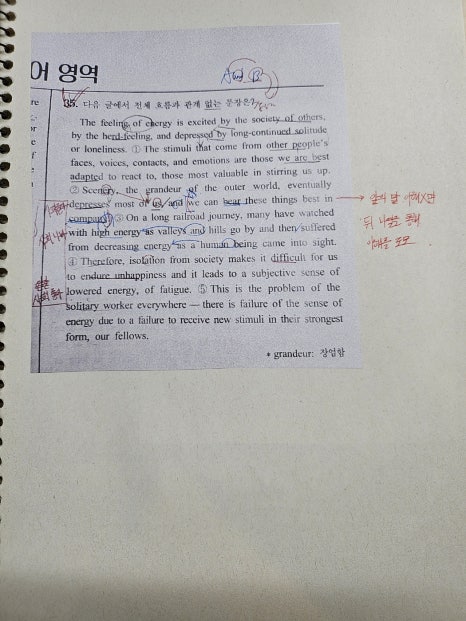 어 영역
And B
35. 다음 글에서 전체 흐름과 관계 없는 문장은?
The feeling of energy is excited by the society of others,
by the herd-feeling, and depressed by long-continued solitude
or loneliness. ① The stimuli that come from other people's
faces, voices, contacts, and emotions are those we are best
adapted to react to, those most valuable in stirring us up.
② Scenery, the grandeur of the outer world, eventually
depresses most of us, and we can bear these things best in
company. ③ On a long railroad journey, many have watched
with high energy as valleys and hills go by and then suffered
from decreasing energy as a human being came into sight.
④ Therefore, isolation from society makes it difficult for us
to endure unhappiness and it leads to a subjective sense of
lowered energy, of fatigue. ⑤ This is the problem of the
solitary worker everywhere — there is failure of the sense of
energy due to a failure to receive new stimuli in their strongest
form, our fellows.
* grandeur: 장엄함
re
r
or
e
f
앞의 말 이해X면
뒤 나열로 통해